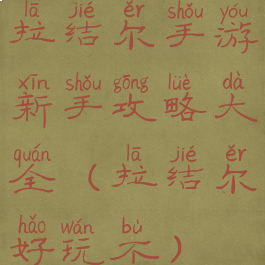 lā jié ěr shǒu yóu
拉结尔手游
xīn shǒu gōng lüè dà
新手攻略大
quán lā jié ěr
全（拉结尔
hǎo wán bù
好玩不）